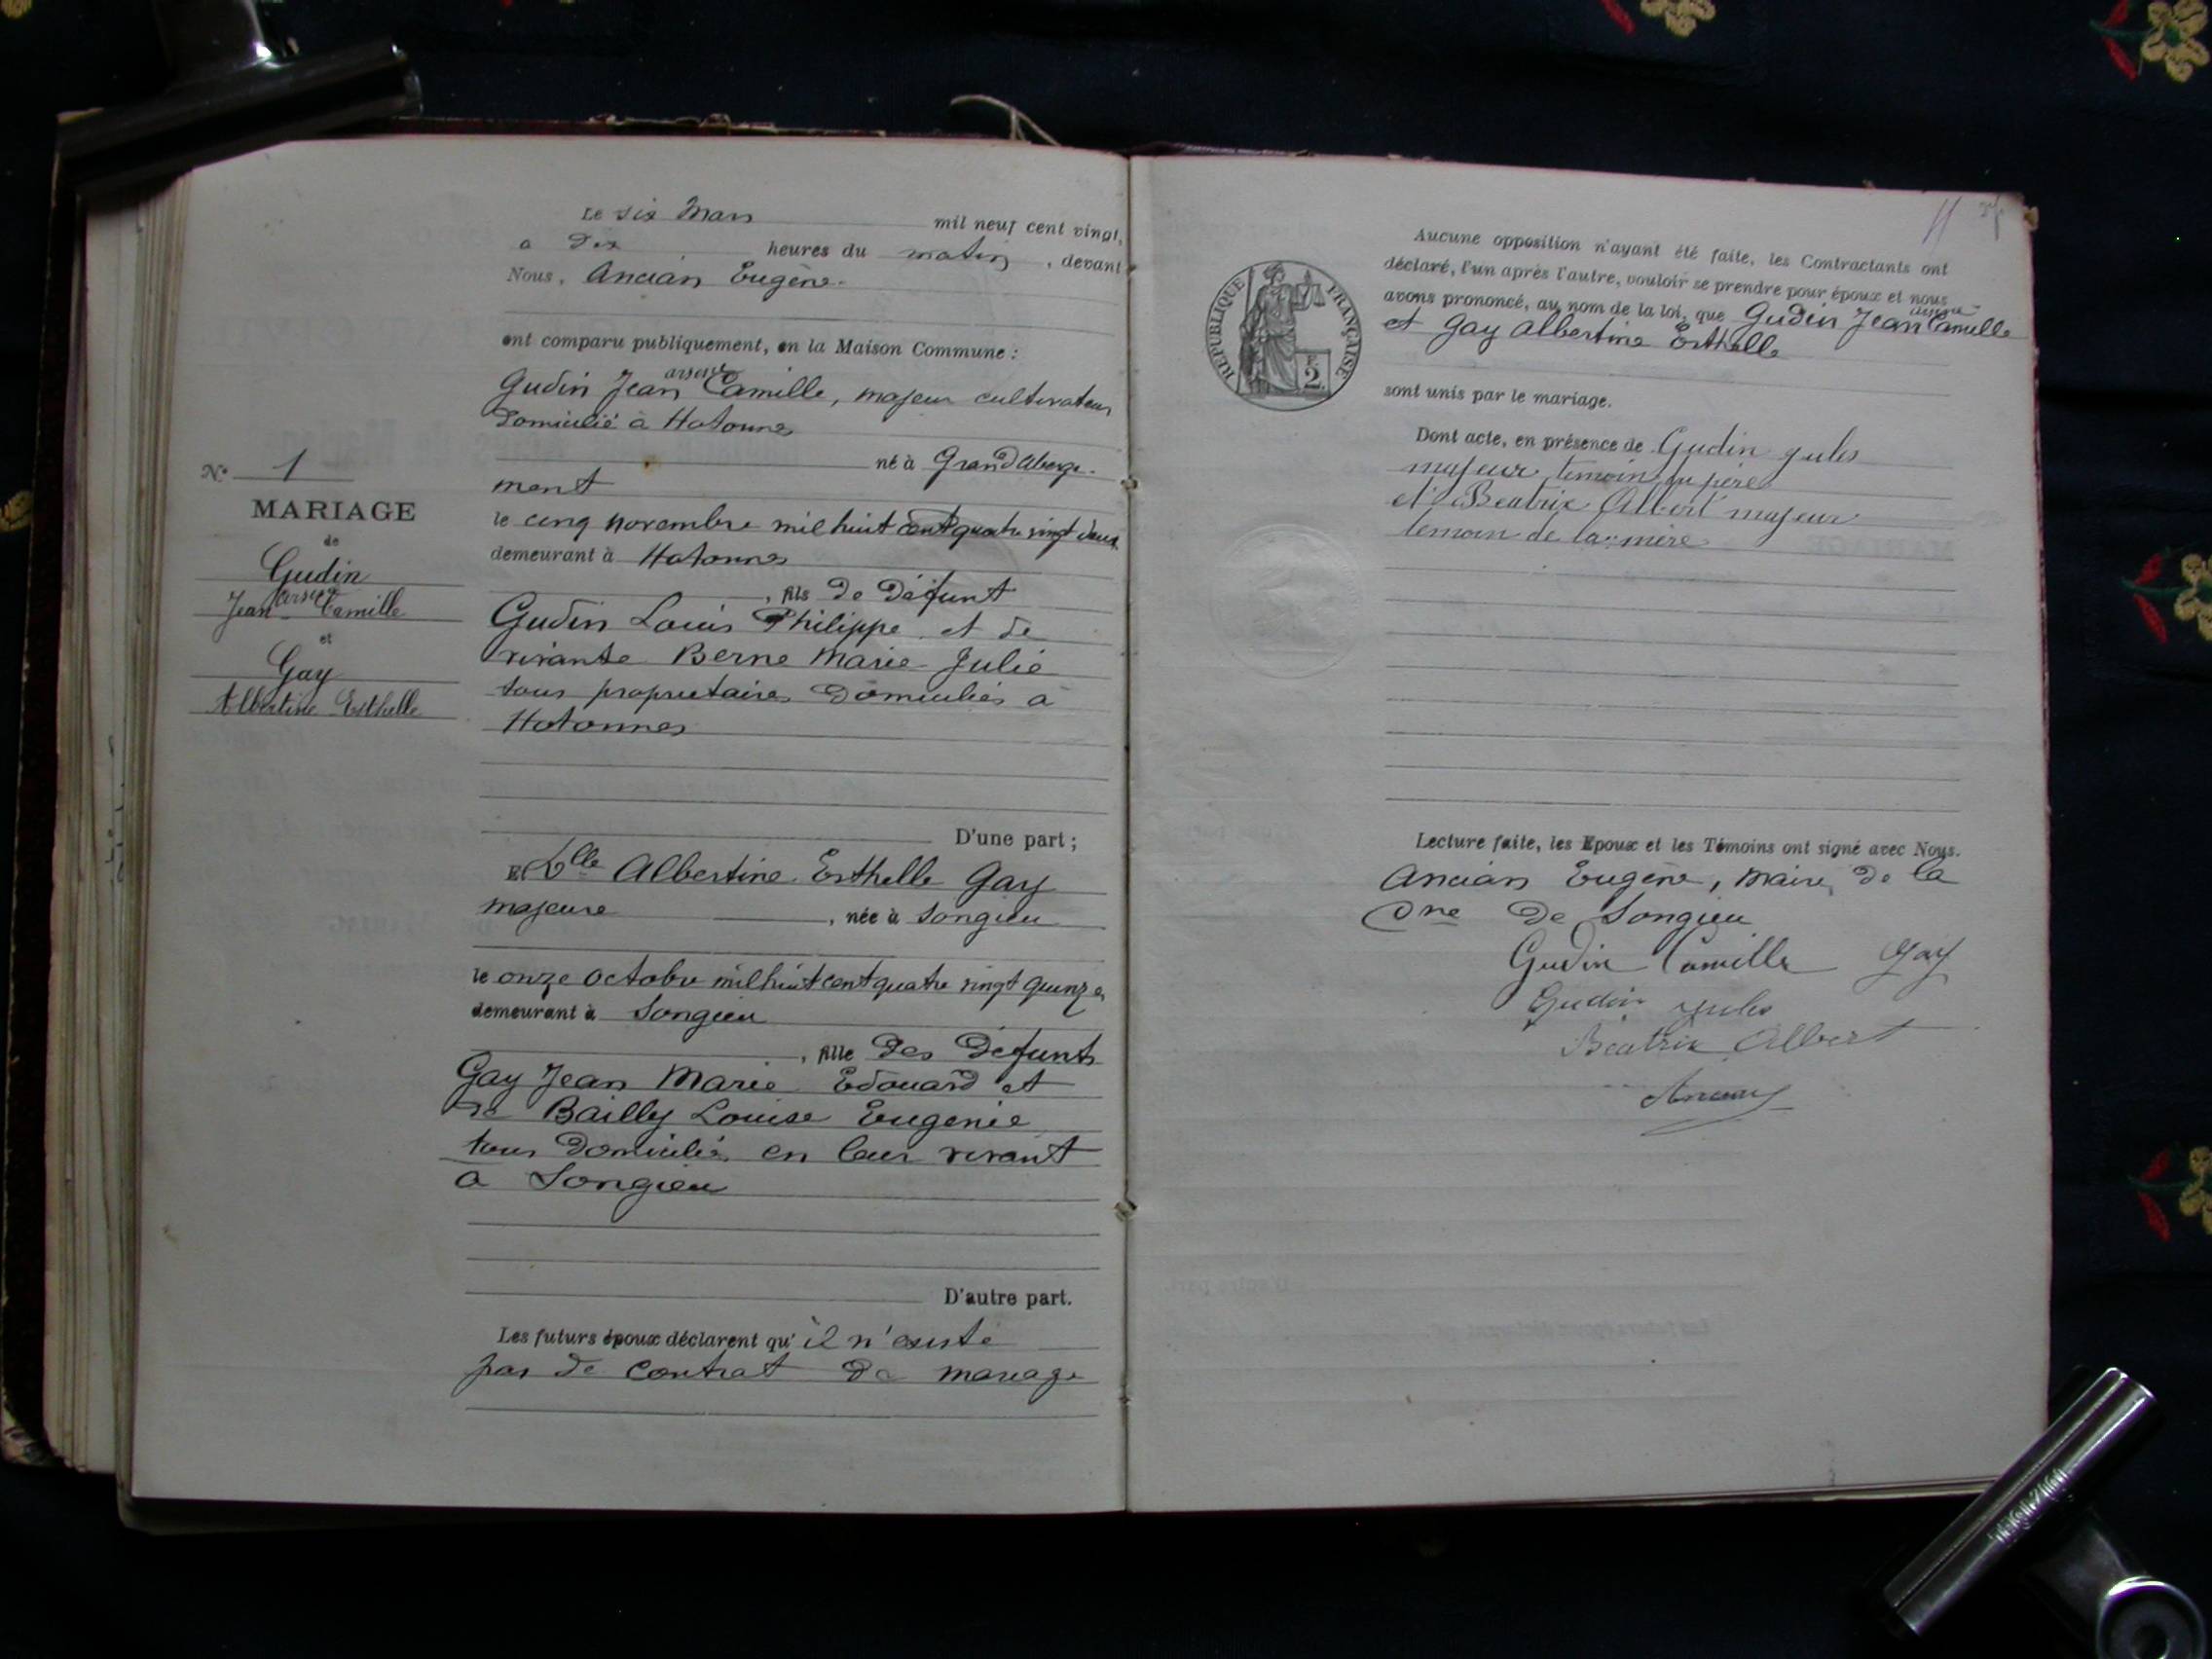 Le six Mars mil neuf cent vingt,
a Dix heures du matin, devant
Nous, Ancian Eugène
ont comparu publiquement, en la Maison Commune :
arsene
Gudin Jean Camille, majeur cultivateur
Domicilié à Hotonnes
né à Grand Aberge-
ment
le cinq novembre mil huit cent quatre vingt deux
demeurant à Hotonnes
, fils de défunt
Gudin Louis Philippe et de
vivante Berne Marie Julie
tous propriétaires Domiciliés à
Hotonnes
D'une part ;
Et Dlle Albertine Esthelle Gay
majeure, née à Songieu
le onze Octobre mil huit cent quatre vingt quinze
demeurant à Songieu
, fille Des Défunts
Gay Jean Marie Edouard et
de Bailly Louise Eugenie
tous Domiciliés en leur vivant
à Songieu
D'autre part.
Les futurs époux déclarent qu' il n'existe
pas de contrat de mariage
No 1
MARIAGE
de
Gudin
arsene
Jean Camille
et
Gay
Albertine Esthelle
RÉPUBLIQUE FRANÇAISE
2
Aucune opposition n'ayant été faite, les Contractants ont
déclaré, l'un après l'autre, vouloir se prendre pour époux et nous
avons prononcé, au nom de la loi, que Gudin Jean arsene Camille
et Gay Albertine Esthelle
sont unis par le mariage.
Dont acte, en présence de Gudin Jules
majeur temoin du père
et Beatrix Albert majeur
temoin de la mère
Lecture faite, les Epoux et les Témoins ont signé avec Nous.
Ancian Eugène, Maire de la
Cne de Songieu
Gudin Camille Gay
Gudin Jules
Beatrix Albert
Ancian